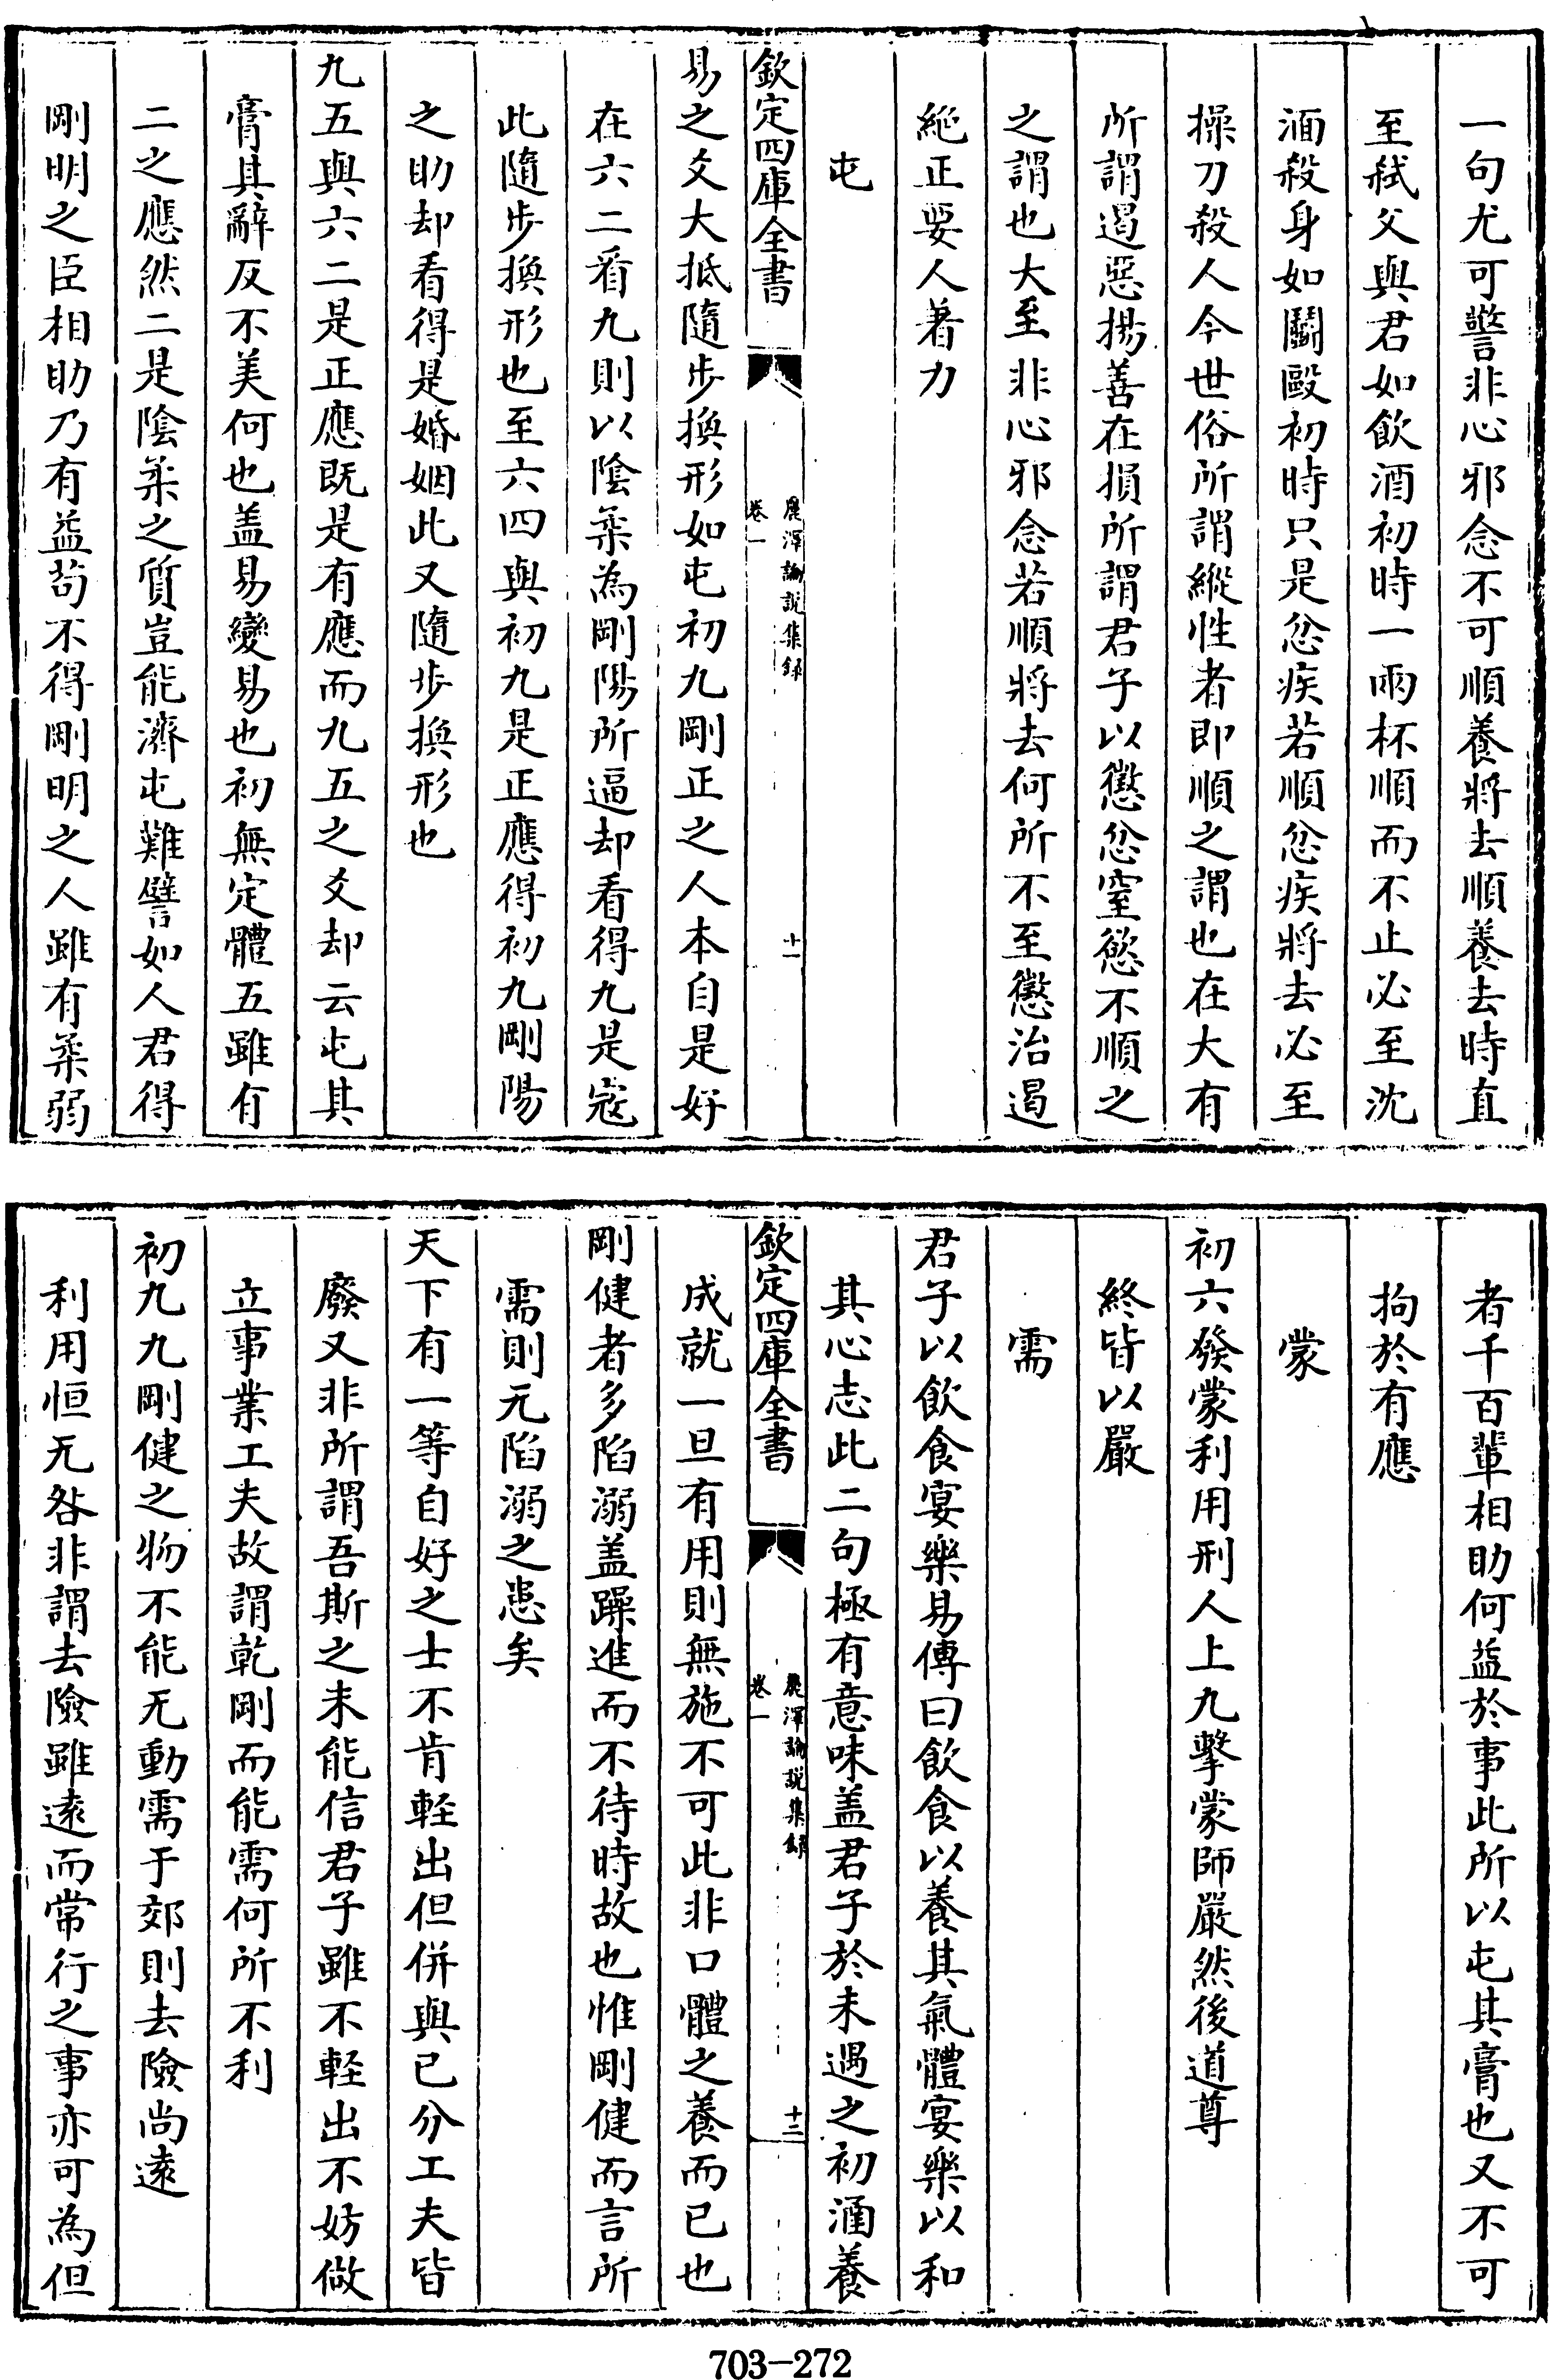 一句尤可警非心邪念不可順養將去順養去時直
至弑父與君如飲酒初時一兩杯順而不止必至沈
湎殺身如鬬毆初時只是忿疾若順忿疾將去必至
操刀殺人今世俗所謂縱性者即順之謂也在大有
所謂遏惡揚善在損所謂君子以懲忿窒慾不順之
之謂也大至非心邪念若順將去何所不至懲治遏
絶正要人着力
屯
欽定四庫全書
麗澤論說集録
卷一
十一
易之爻大抵隨步換形如屯初九剛正之人本自是好
在六二看九則以陰柔為剛陽所逼却看得九是寇
此隨步換形也至六四與初九是正應得初九剛陽
之助却看得是婚姻此又隨步換形也
九五與六二是正應既是有應而九五之爻却云屯其
膏其辭反不美何也盖易變易也初無定體五雖有
二之應然二是陰柔之質豈能濟屯難譬如人君得
剛明之臣相助乃有益苟不得剛明之人雖有柔弱
者千百輩相助何益於事此所以屯其膏也又不可
拘於有應
蒙
初六發蒙利用刑人上九擊蒙師嚴然後道尊
終皆以嚴
需
君子以飲食宴樂易傳曰飲食以養其氣體宴樂以和
其心志此二句極有意味盖君子於未遇之初涵養
欽定四庫全書
麗澤論說集録
卷一
十二
成就一旦有用則無施不可此非口體之養而已也
剛健者多陷溺盖躁進而不待時故也惟剛健而言所
需則无陷溺之患矣
天下有一等自好之士不肯輕出但併與已分工夫皆
廢又非所謂吾斯之未能信君子雖不輕出不妨做
立事業工夫故謂乾剛而能需何所不利
初九九剛健之物不能无動需于郊則去險尚遠
利用恒无咎非謂去險雖遠而常行之事亦可為但
703-272